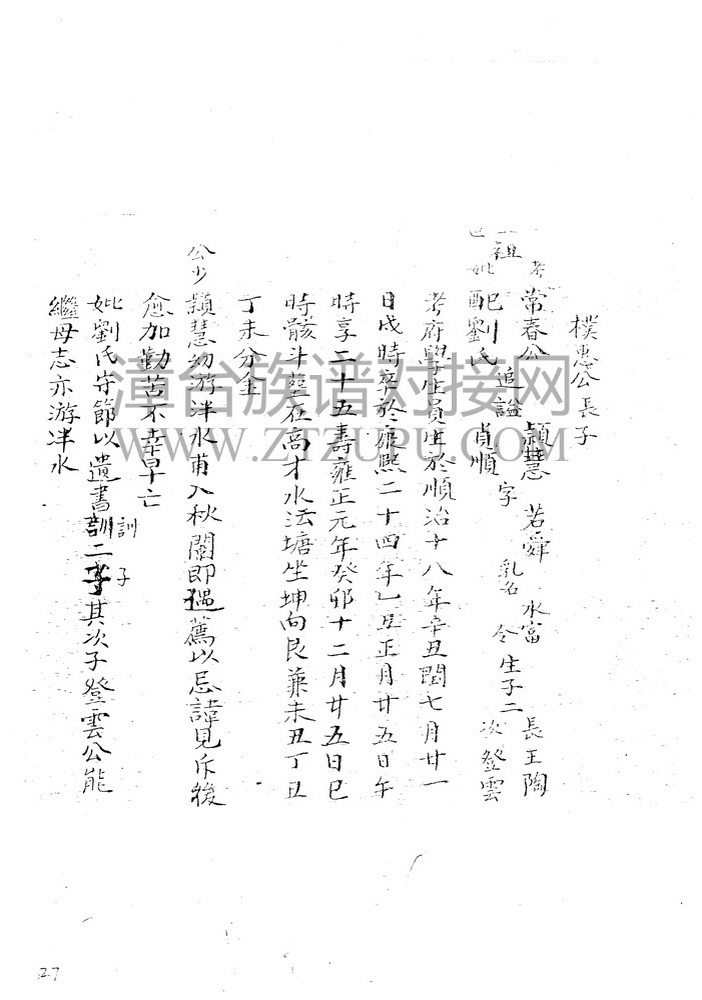 樸惠公長子
考 常春公 追諡 穎慧 字 若舜 乳名 水富 生子二 長王陶 次登雲
祖
妣 配劉氏 貞順 令
考府學生員生於順治十八年辛丑閏七月廿一
日戌時卒於康熙二十四年乙丑正月廿五日午
時享二十五壽雍正元年癸卯十二月廿五日巳
時骸斗葬在高才水汯塘坐坤向艮兼未丑丁丑
丁未分金
公少穎慧幼游泮水甫入秋闈即遇薦以忌諱見斥後
愈加勤苦不幸早亡
妣劉氏守節以遺書訓二子其次子登雲公能
訓 子
繼母志亦游泮水
漳台族谱对接网
WWW.ZTZUPU.COM
27